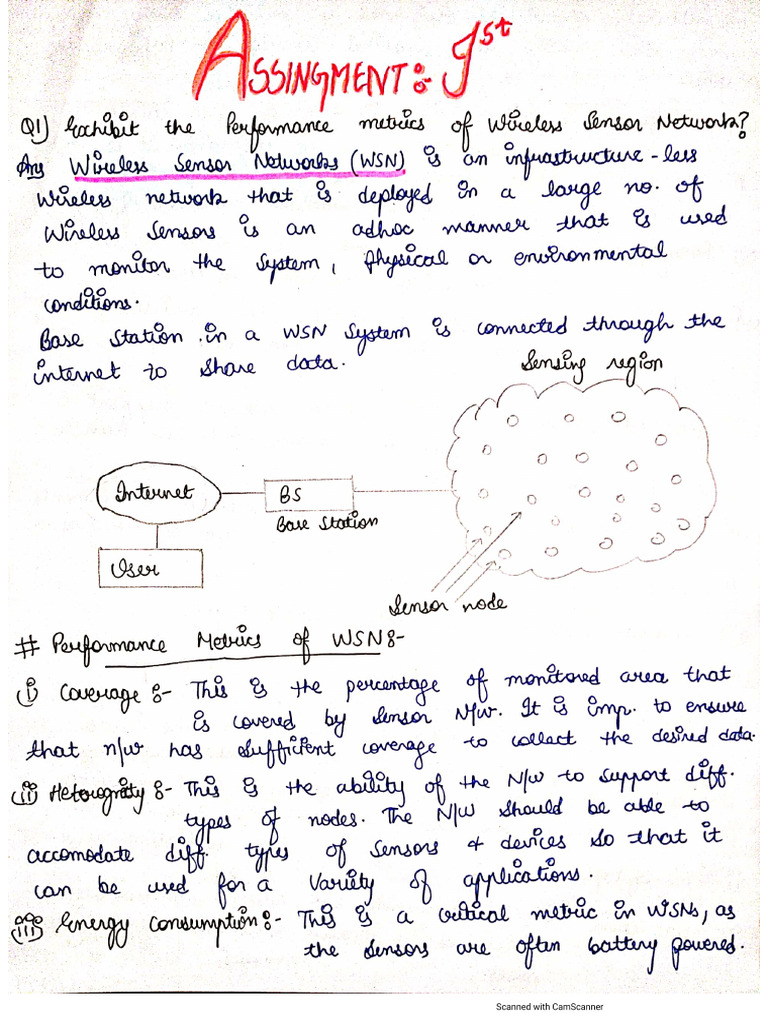 ASSINGMENT:- Ist
Q1) Exhibit the Performance metrics of Wireless Sensor Network?
Ans Wireless Sensor Networks (WSN) is an infrastructure-less
wireless network that is deployed in a large no. of
wireless sensors is an adhoc manner that is used
to monitor the system, physical or environmental
conditions.
Base Station in a WSN System is connected through the
internet to share data.
Sensing region
Internet
BS
Base Station
User
Sensor node
# Performance Metrics of WSN:-
(i) Coverage:- This is the percentage of monitored area that
is covered by sensor N/w. It is imp. to ensure
that n/w has sufficient coverage to collect the desired data.
(ii) Heterognity:- This is the ability of the N/W to support diff.
types of nodes. The N/W should be able to
accomodate diff. types of sensors & devices so that it
can be used for a variety of applications.
(iii) Energy Consumption:- This is a critical metric in WSNs, as
the sensors are often battery powered.
Scanned with CamScanner